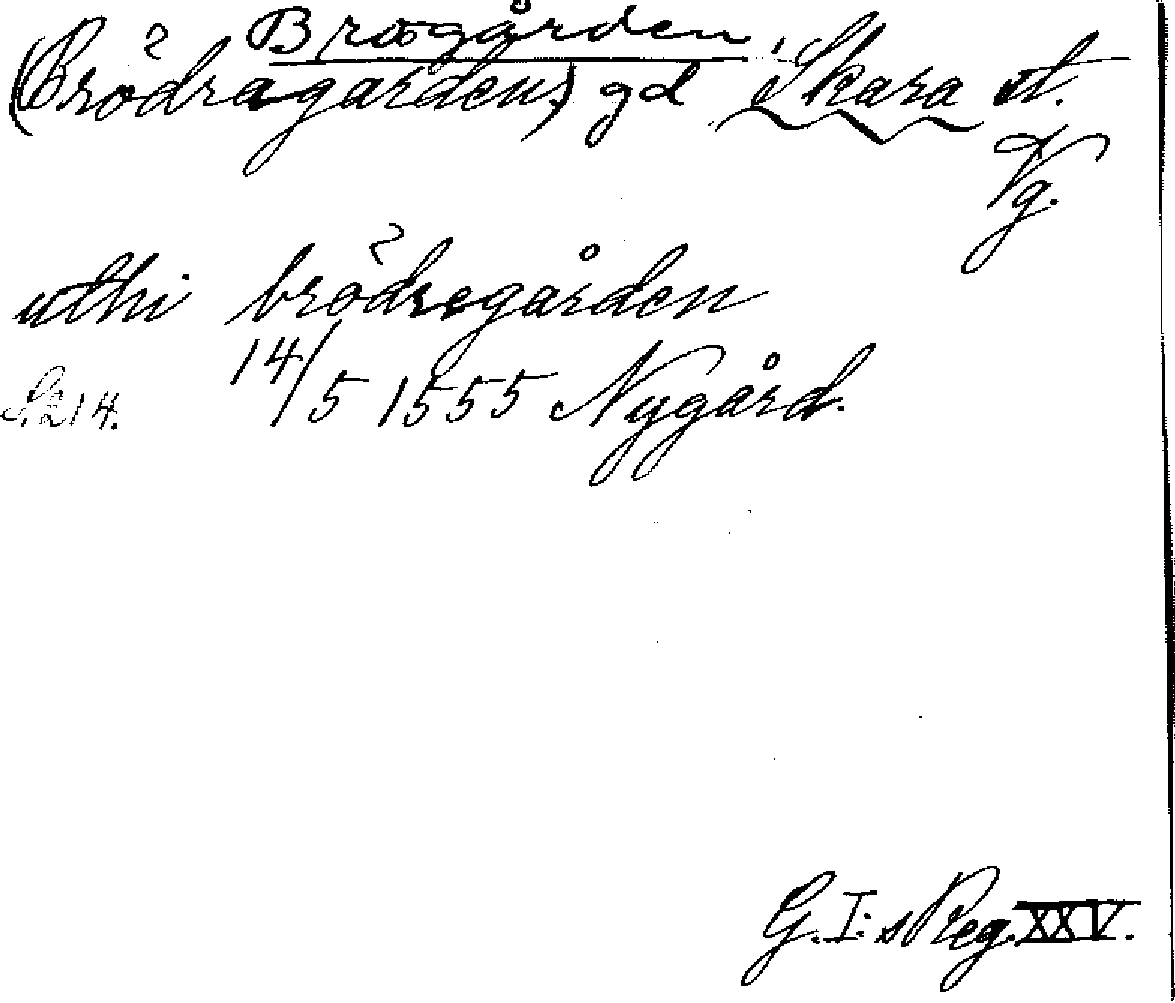 Brogården
(Brödragarden) gd Skara st.
Vg.
uthi brödregården
S. 214. 14/5 1555 Nygård.
G. I:s Reg. XXV.